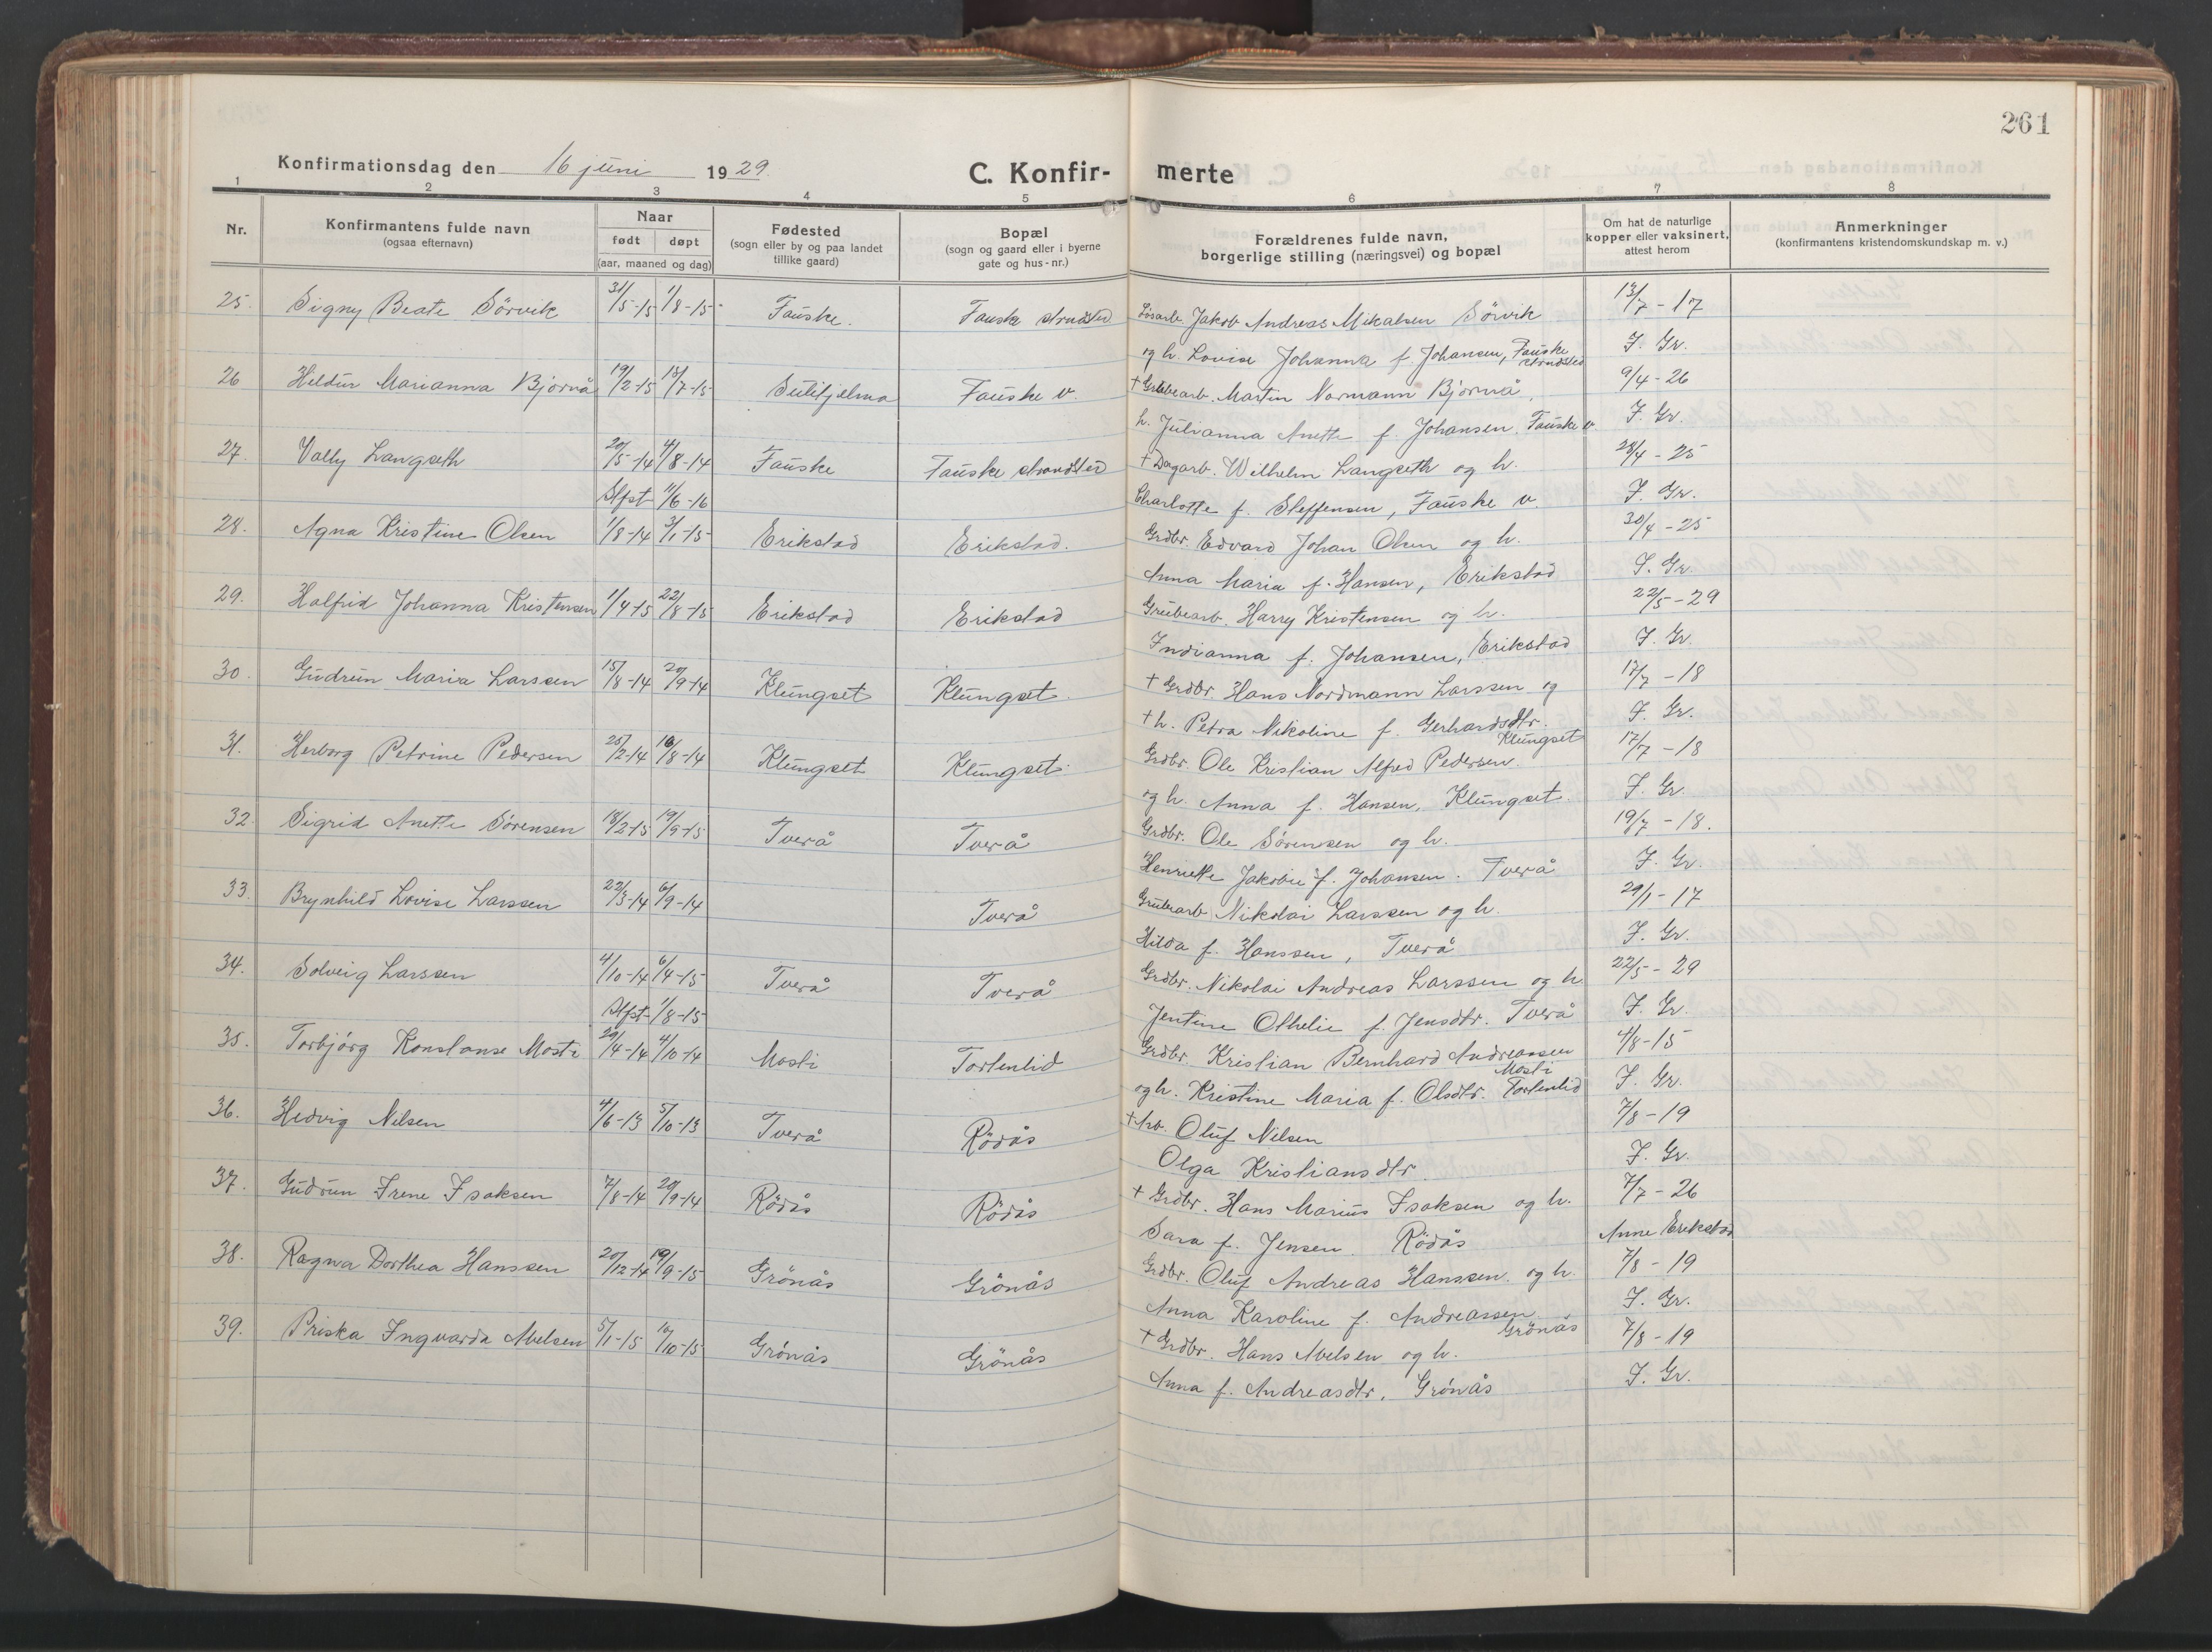 261
Konfirmationsdag den 16 juni 1929.
C. Konfir- merte
1 2 3 4 5 6 7 8
Nr.
Konfirmantens fulde navn
(ogsaa efternavn)
Naar
født døpt
(aar, maaned og dag)
Fødested
(sogn eller by og paa landet
tillike gaard)
Bopæl
(sogn og gaard eller i byerne
gate og hus-nr.)
Forældrenes fulde navn,
borgerlige stilling (næringsvei) og bopæl
Om hat de naturlige
kopper eller vaksinert,
attest herom
Anmerkninger
(konfirmantens kristendomskundskap m. v.)
25. Signy Beate Sörvik 31/5-15 1/8-15 Fauske. Fauske strandsted Lösarb. Jakob Andreas Mikalsen Sörvik 13/7-17
og h. Lovise Johanna f. Johansen, Fauske strandsted J. Gr.
26 Hildur Marianna Bjornå 19/2-15 18/7-15 Sulitjelma Fauske v. + Grubearb. Martin Normann Bjørnå, 9/4-26
h. Julianna Anette f. Johansen. Fauske v. J. Gr.
27. Vally Langseth 20/5-14 4/8-14 Fauske Fauske strandsted + Dagarb. Wilhelm Langseth og h. 28/4-25
Stfst 11/6-16 Charlotte f. Steffensen, Fauske v. J. Gr.
28. Agna Kristine Olsen 1/8-14 3/1-15 Erikstad Erikstad. Grdbr. Edvard Johan Olsen og h. 30/4-25
Anna Maria f. Hansen, Erikstad J. Gr.
29. Halfrid Johanna Kristensen 1/4-15 22/8-15 Erikstad Erikstad Grubearb. Harry Kristensen og h. 22/5-29
Indianna f. Johansen, Erikstad J. Gr.
30. Gudrun Maria Larssen 15/8-14 20/9-14 Klungset Klungset. + Grdbr. Hans Nordmann Larssen og 17/7-18
+ h. Petra Nikoline f. Gerhardsdtr. Klungset J. Gr.
31. Herborg Petrine Pedersen 25/2-14 16/8-14 Klungset Klungset. Grdbr. Ole Kristian Alfred Pedersen. 17/7-18
og h. Anna f. Hansen, Klungset. J. Gr.
32. Sigrid Anette Sörensen 18/2-15 19/9-15 Tverå Tverå Grdbr. Ole Sörensen og h. 19/7-18.
Henriette Jakobie f. Johansen. Tverå J. Gr.
33. Brynhild Lovise Larssen 22/3-14 6/9-14 Tverå Grubearb. Nikolai Larssen og h. 29/1-17
Hilda f. Hanssen, Tverå J. Gr.
34. Solveig Larssen 4/10-14 6/4-15 Tverå Tverå Grdbr. Nikolai Andreas Larssen og h 22/5-29
Stfst 1/8-15 Jentine Othelie f. Jensdtr. Tverå J. Gr.
35. Torbjörg Konstanse Mosti 29/4-14 4/10-14 Mosti Tortenlid Grdbr. Kristian Bernhard Andreassen 4/8-15
og h. Kristine Maria f. Olsdtr. Mosti Tortenlid J. Gr.
36. Hedvig Nilsen 4/6-13 5/10-13 Tverå Rödås + Arb. Oluf Nilsen 7/8-19
Olga Kristiansdtr. J. Gr.
37. Gudrun Irene Isaksen 7/8-14 20/9-14 Rödås Rödås + Grdbr. Hans Marius Isaksen og h. 7/7-26
Sara f. Jensen. Rödås Anne Erikstad
38. Ragna Dorthea Hanssen 20/12-14 19/9-15 Grönås Grönås Grdbr. Oluf Andreas Hanssen. og h. 7/8-19
Anna Karoline f. Andreassen, Grönås J. Gr.
39. Priska Ingvarda Abelsen 5/1-15 10/10-15 Grönås Grönås + Grdbr. Hans Abelsen og h. 7/8-19
Anna f. Andreasdtr, Grönås J. Gr.